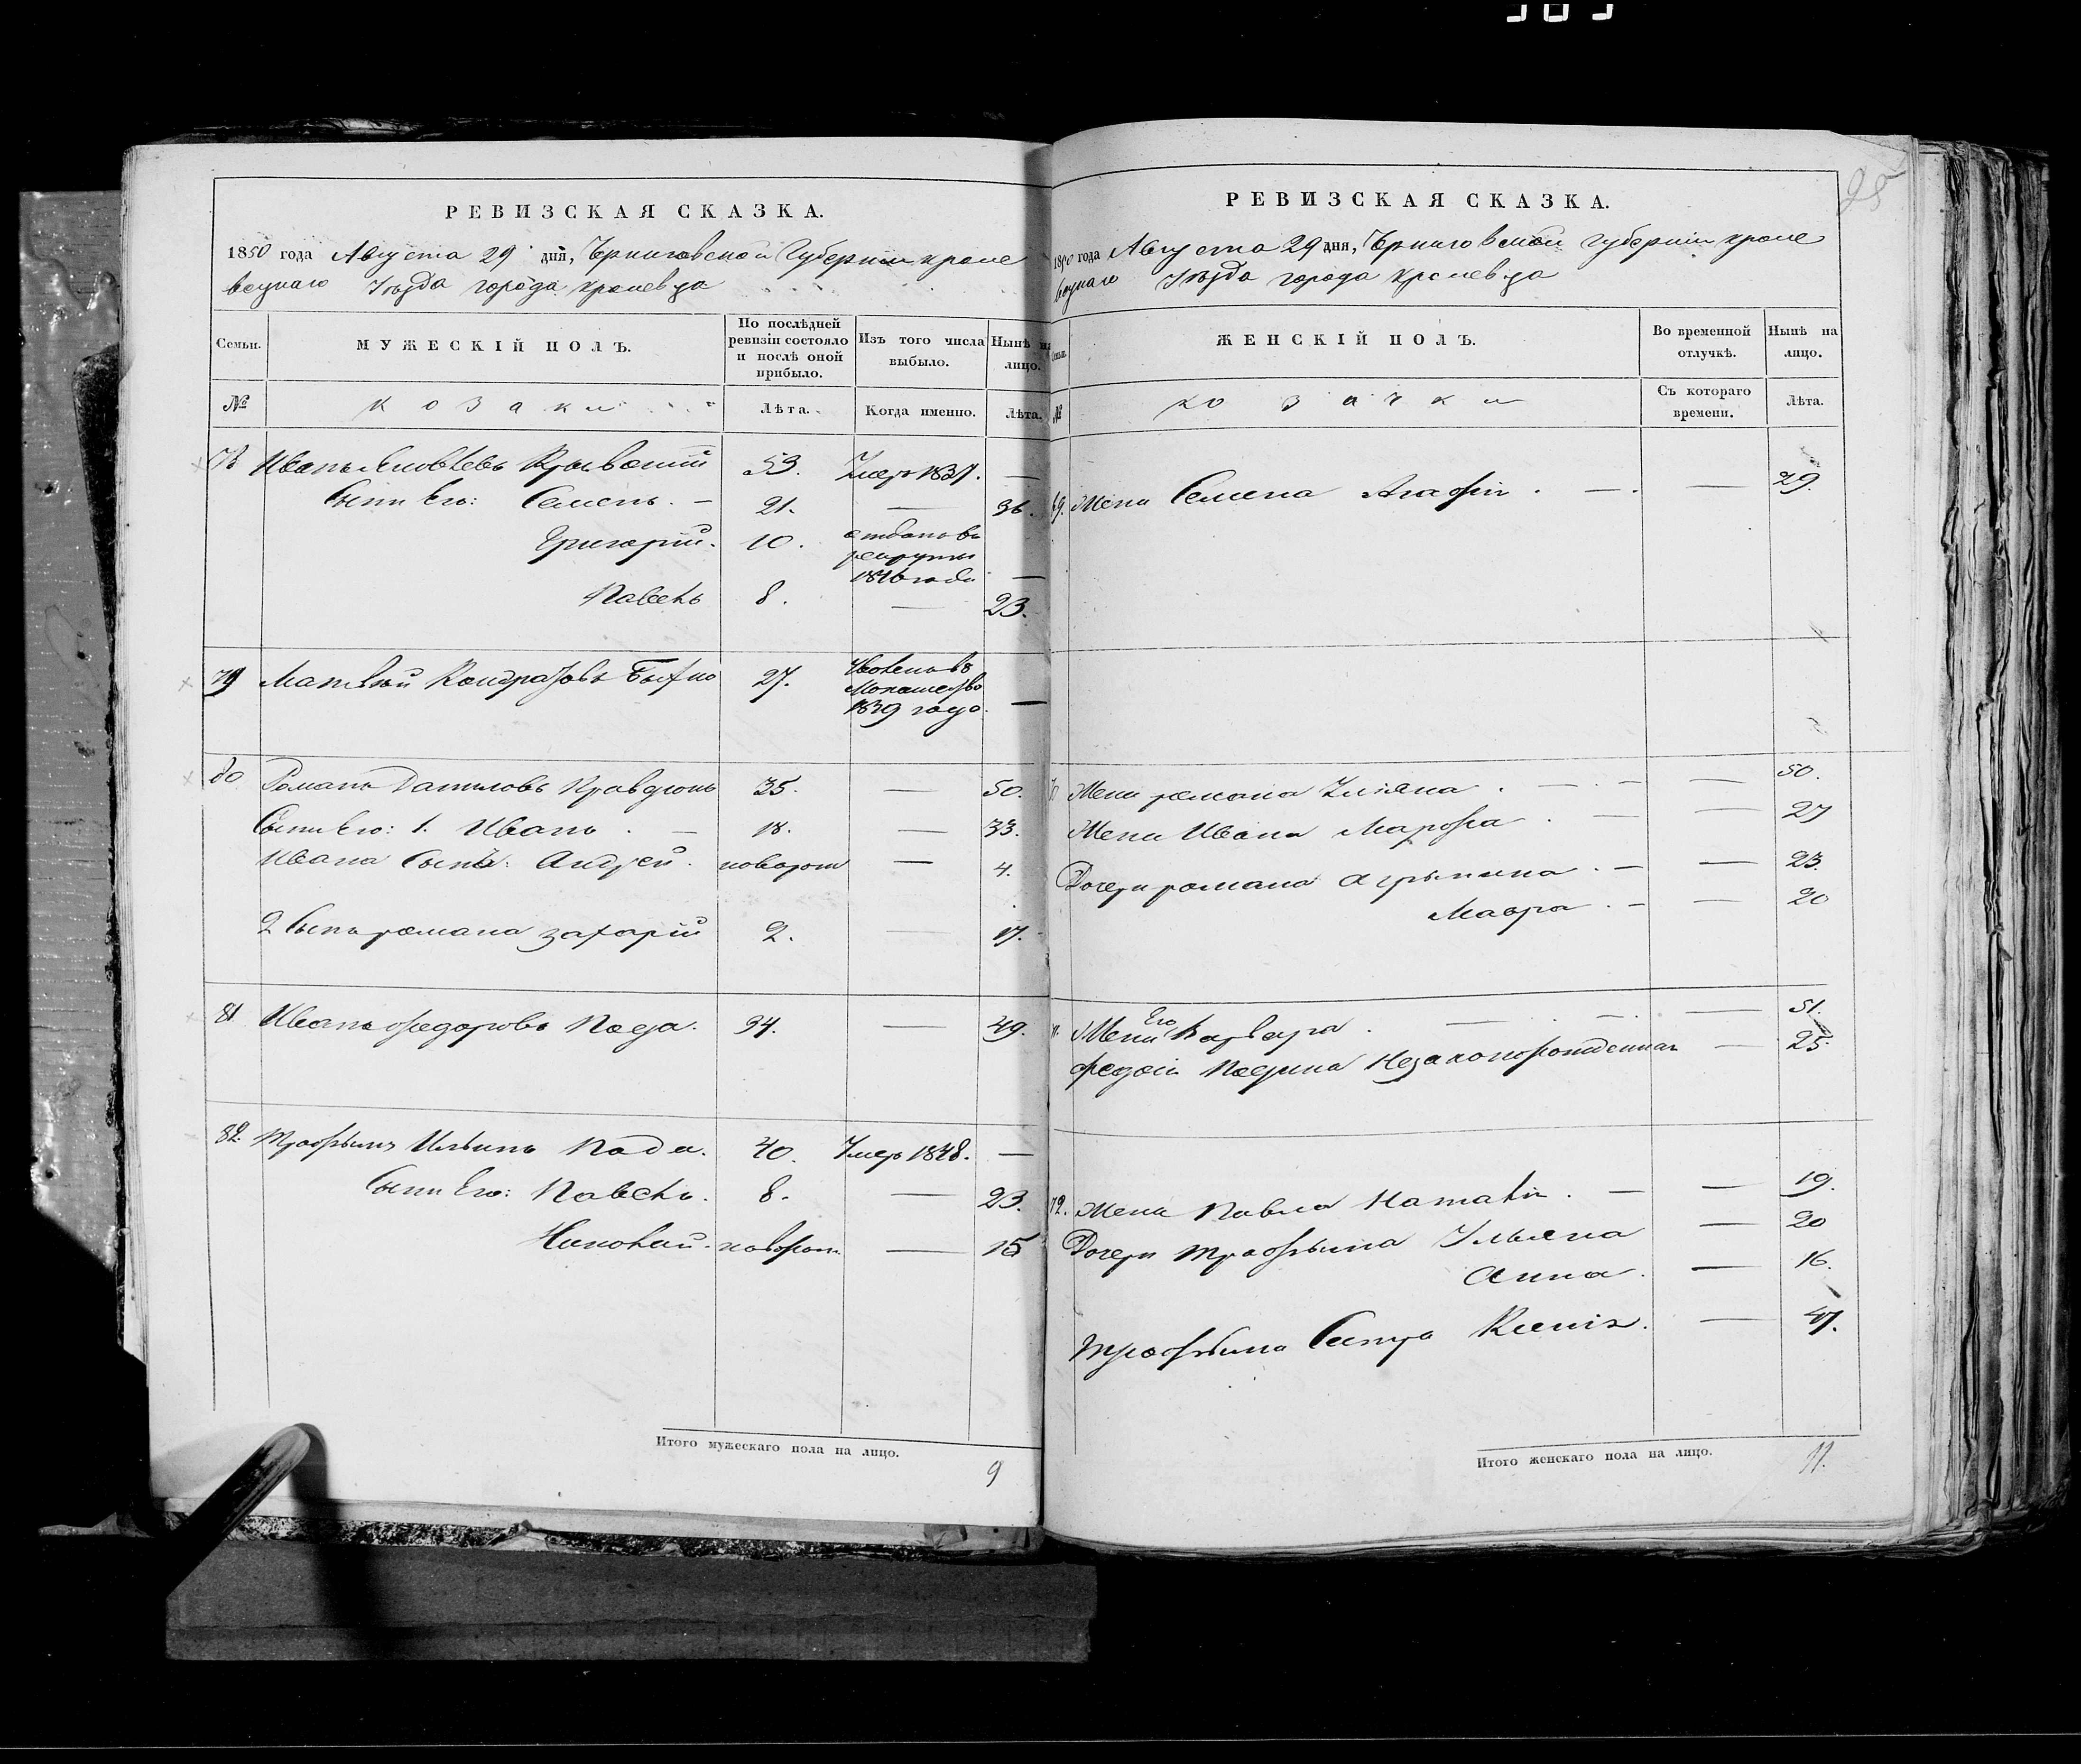 РЕВИЗСКАЯ СКАЗКА.
1850 года Августа 29 дня, Черниговской Губернии Кроле
вецкаго Уѣзда города Кролевца
Семьи.
МУЖЕСКІЙ ПОЛЪ.
По послѣдней ревизіи состояло и послѣ оной прибыло.
Изъ того числа выбыло.
Нынѣ на лицо.
№
козаки
Лѣта.
Когда именно.
Лѣта.
Иванъ Яковлевъ 53. Умеръ 1837. —
Сыны Его: Семенъ. — 21. — 36.
Григорій. 10. отданъ въ рекруты 1846 года —
Павелъ 8. — 23.
79 Матвѣй Кондратовъ 27. Монашество 1839 года. —
80 Романъ Даниловъ 35. — 50.
Сыны Его: 1. Иванъ. — 18. — 33.
Ивана Сынъ: Андрей. новорож — 4.
2 Сынъ романа Захарій 2. — 17.
81 Иванъ Федоровъ 34. — 49.
82. Трофимъ Ильинъ Пода. 40. Умеръ 1848. —
Сыны Его: Павелъ. 8. — 23.
Николай. новорож. — 15
Итого мужескаго пола на лицо.
9
25
РЕВИЗСКАЯ СКАЗКА.
1850 года Августа 29 дня, Черниговской Губерніи Кроле
вецкаго Уѣзда города Кролевца
Семьи.
ЖЕНСКІЙ ПОЛЪ.
Во временной отлучкѣ.
Нынѣ на лицо.
№
козачки
Съ котораго времени.
Лѣта.
69. Жена Семена Агафія. — — 29.
70 Жена романа Уліяна. — — 50.
Жена Ивана Марфа. — — 27
Дочери романа Агрыпина. — — 23.
Мавра. — — 20
Жена Его Варвара. — — 51.
Федосія Незаконорожденная — 25.
72. Жена Павла Наталія. — — 19.
Дочери Трофима Ульяна — 20
Анна. — 16.
Трофима Сестра Ксенія. — 47.
Итого женскаго пола на лицо.
11.